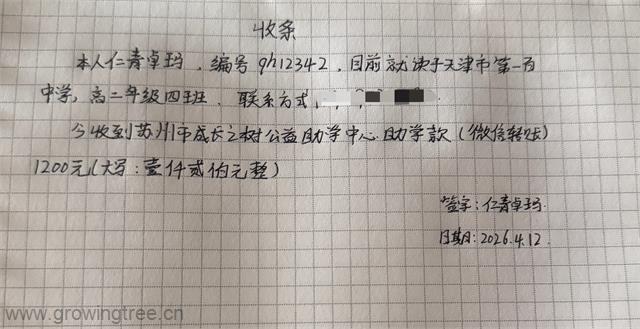 收条
本人仁青卓玛,编号qh12342,目前就读于天津市第一百
中学,高二年级四班,联系方式
今收到苏州市成长之树公益助学中心助学款(微信转账)
1200元(大写:壹仟贰佰元整)
签字:仁青卓玛
日期:2026.4.12
www.growingtree.cn